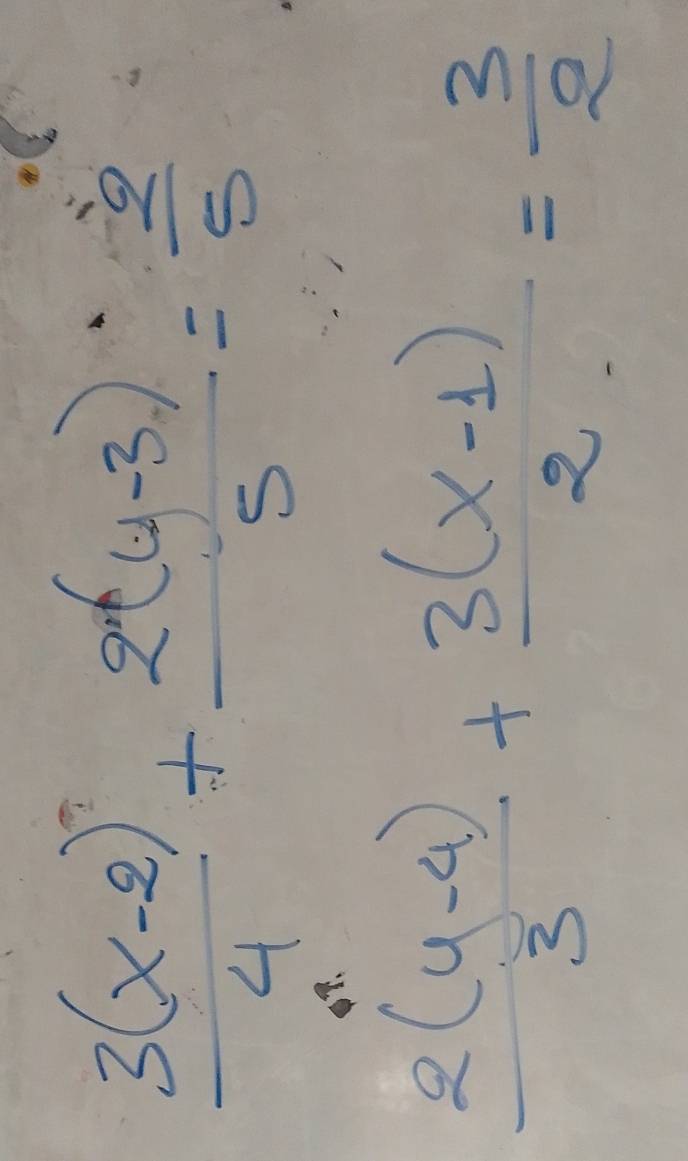 3(x-2)/4 + 2(y-3)/5 = 2/5
2(y-4)/3 + 3(x-1)/2 = 3/2